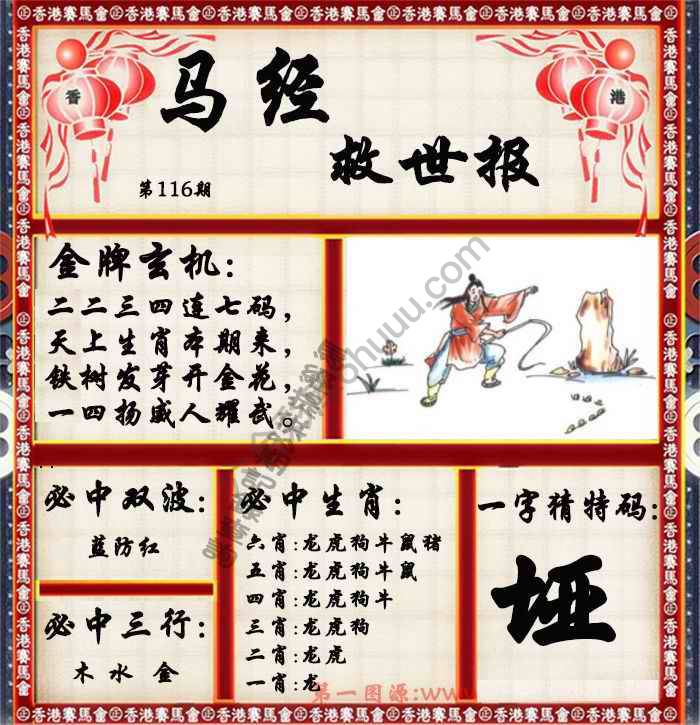 香港賽馬會
香
港
马经
救世报
第116期
金牌玄机:
二二三四连七码,
天上生肖本期来,
铁树发芽开金花,
一四扬威人耀武。
必中双波:
蓝防红
必中三行:
木 水 金
必中生肖:
六肖:龙虎狗牛鼠猪
五肖:龙虎狗牛鼠
四肖:龙虎狗牛
三肖:龙虎狗
二肖:龙虎
一肖:龙
一字猜特码:
垭
第一图源:www